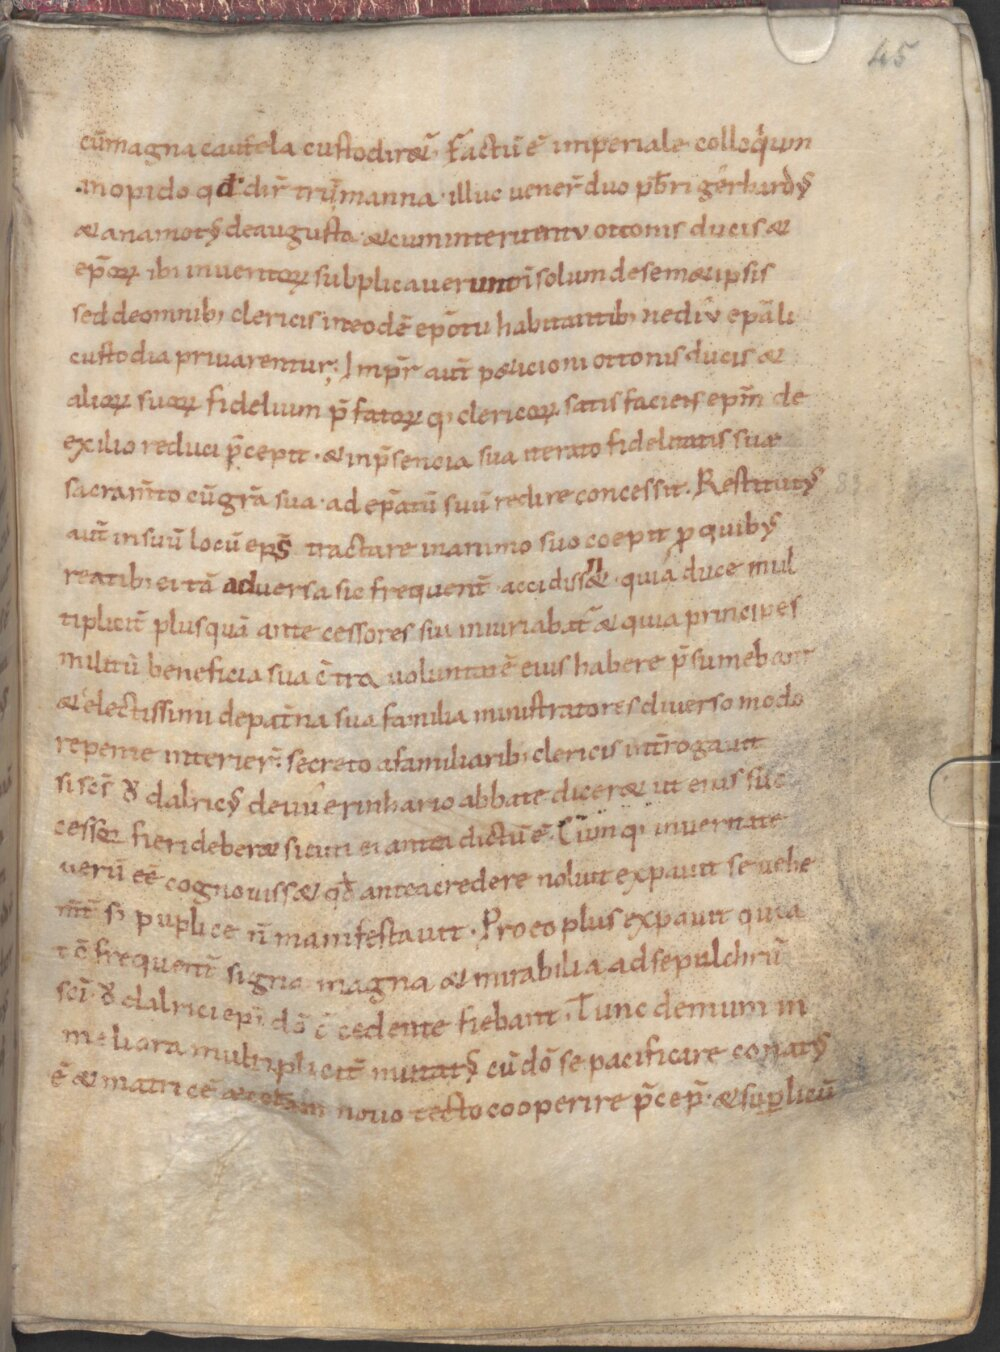 45
cū magna cautela custodiret᷑. Factū ē imperiale colloquium
in opido qđ dir̄ truͥmanna · illuc uener̄ duo p̄bri gerhardꝰ
& anamotꝰ de augusta · & cum interuentu ottonis ducis &
ep̄oꝝ ibi inuentoꝝ subplicauerunt ñ solum de sem& ipsis
sed de omnib; clericis in eodē ep̄otu habitantib; ne diu ep̄ali
custodia priuarentur; Imp̄r aut̄ p&icioni ottonis ducis &
alioꝝ suoꝝ fidelium p̄fatoꝝ q; clericoꝝ satisfaciens ep̄m de
exilio reduci p̄cepit · & in p̄sencia sua iterato fidelitatis suæ
sacram̄to cū gr̄a sua · ad ep̄atū suū redire concessit. Restitutꝰ
aut̄ in suū locū ep̄s tractare in animo suo coepit p̱ quibꝰ
reatib; ei tā aduersa sic frequent̄ accidiss&n · quia duce mul
tiplicit̄ plusquā antecessores sui iniuriabat᷑ & quia principes
militū beneficia sua c̄tra uoluntatē eius habere p̄sumebant
& electissimi de pat̄na sua familia ministratores diuerso modo
repente interier̄ · secreto a familiarib; clericis int̄rogauit
si sc̄s ȣdalricꝰ de uuerinhario abbate dicer& ut eius suc
cessor fieri deber& sicuti ei antea dictū ē. Cumq; in ueritate
uerū eē cognouiss& qđ antea credere noluit expauit se uehe
m̄t̄ si puplice ñ manifestauit. Pro eo plus expauit quia
tc̄ frequent̄ signa magna & mirabilia ad sepulchrū
sc̄i ȣdalrici ep̄i dō c̄cedente fiebant. Tunc demum in
meliora multiplicit̄ mutatꝰ cū dō se pacificare conatꝰ
ē & matricē æcclam nouo tecto cooperire p̄cep̄ · & suplicū